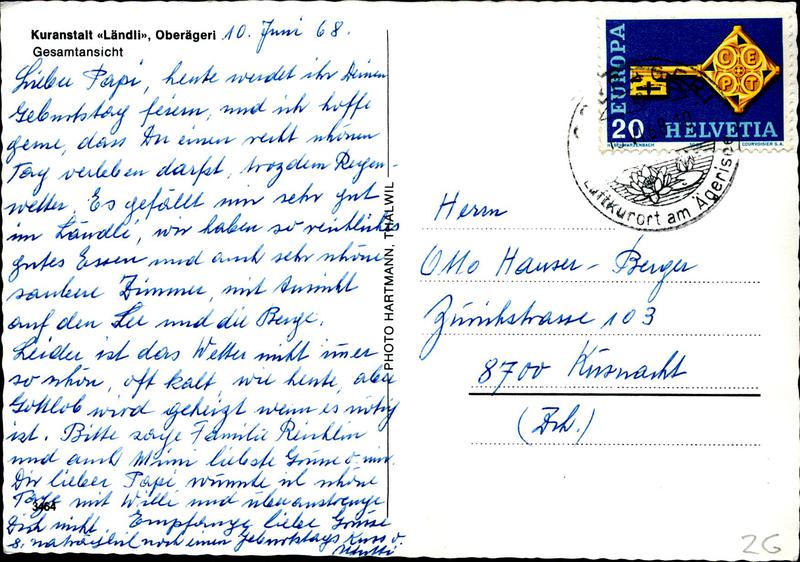 Kuranstalt «Ländli», Oberägeri 10. Juni 68.
Gesamtansicht
Lieber Papi, heute werdet ihr Deinen
Geburtstag feiern, und ich hoffe
gerne, dass Du einen recht schönen
Tag verleben darfst, trozdem Regen-
wetter. Es gefällt mir sehr gut
im Ländli, wir haben so reichliches
gutes Essen und auch sehr schöne
saubere Zimmer, mit Aussicht
auf den See und die Berge.
Leider ist das Wetter nicht imer
so schön, oft kalt wie heute, aber
Gottlob wird geheizt wenn es nötig
ist. Bitte sage Familie
und auch Mimi liebste Grüsse v. mir.
Dir lieber Papi wünsche ich schöne
Tage mit Willi und überanstrenge
Dich nicht. Empfange liebe Grüsse
& natürlich noch einen Geburtstags Kuss v.
Mutti
3464
PHOTO HARTMANN, THALWIL
EUROPA
CEPT
20 HELVETIA
COURVOISIER S.A.
Luftkurort am Ägerisee
Herrn
Otto Hauser-Berger
Zürichstrasse 103
8700 Küsnacht
(Zch.)
2G